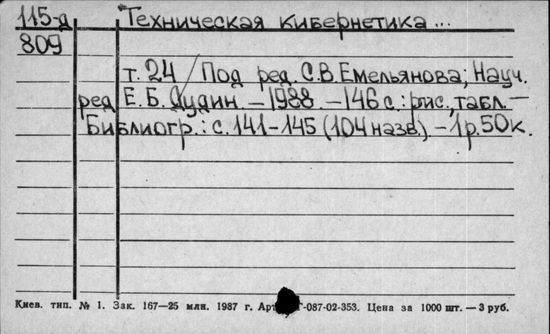 115-д Техническая кибернетика...
809
т. 24 / Под ред. С.В. Емельянова, Науч.
ред Е.Б. Дудин. – 1988 – 146 с.: рис., табл. –
Библиогр.: с. 141-145 (104 назв.) – 1 р. 50 к.
Киев. тип. № 1. Зак. 167—25 млн. 1987 г. -087-02-353. Цена за 1000 шт. — 3 руб.